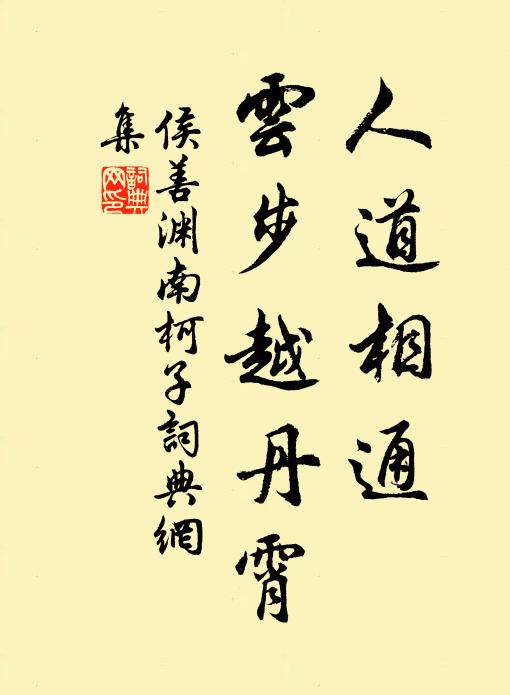 人道相通
雲步越丹霄
侯善渊南柯子詞典網
集
詞典
网印